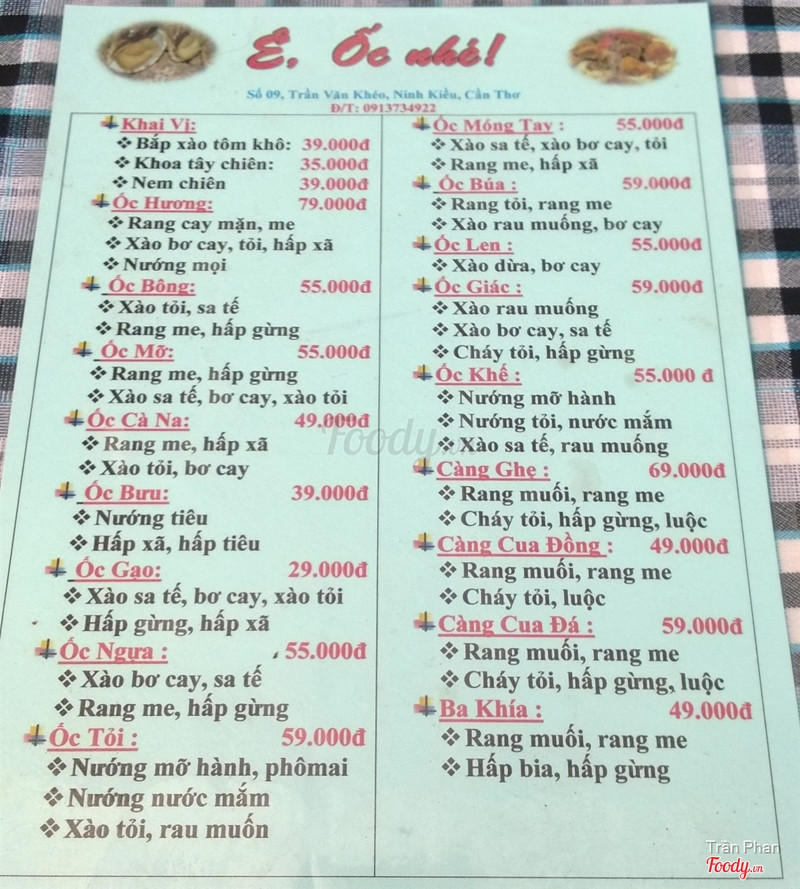 Ê, Ốc nhé!
Số 09, Trần Văn Khéo, Ninh Kiều, Cần Thơ
Đ/T: 0913734922
Khai Vị:
❖ Bắp xào tôm khô: 39.000đ
❖ Khoa tây chiên: 35.000đ
❖ Nem chiên 39.000đ
Ốc Hương: 79.000đ
❖ Rang cay mặn, me
❖ Xào bơ cay, tỏi, hấp xã
❖ Nướng mọi
Ốc Bông: 55.000đ
❖ Xào tỏi, sa tế
❖ Rang me, hấp gừng
Ốc Mỡ: 55.000đ
❖ Rang me, hấp gừng
❖ Xào sa tế, bơ cay, xào tỏi
Ốc Cà Na: 49.000đ
❖ Rang me, hấp xã
❖ Xào tỏi, bơ cay
Ốc Bưu: 39.000đ
❖ Nướng tiêu
❖ Hấp xã, hấp tiêu
Ốc Gạo: 29.000đ
❖ Xào sa tế, bơ cay, xào tỏi
❖ Hấp gừng, hấp xã
Ốc Ngựa : 55.000đ
❖ Xào bơ cay, sa tế
❖ Rang me, hấp gừng
Ốc Tỏi : 59.000đ
❖ Nướng mỡ hành, phômai
❖ Nướng nước mắm
❖ Xào tỏi, rau muốn
Ốc Móng Tay : 55.000đ
❖ Xào sa tế, xào bơ cay, tỏi
❖ Rang me, hấp xã
Ốc Búa : 59.000đ
❖ Rang tỏi, rang me
❖ Xào rau muống, bơ cay
Ốc Len : 55.000đ
❖ Xào dừa, bơ cay
Ốc Giác : 59.000đ
❖ Xào rau muống
❖ Xào bơ cay, sa tế
❖ Cháy tỏi, hấp gừng
Ốc Khế : 55.000 đ
❖ Nướng mỡ hành
❖ Nướng tỏi, nước mắm
❖ Xào sa tế, rau muống
Càng Ghẹ : 69.000đ
❖ Rang muối, rang me
❖ Cháy tỏi, hấp gừng, luộc
Càng Cua Đồng : 49.000đ
❖ Rang muối, rang me
❖ Cháy tỏi, luộc
Càng Cua Đá : 59.000đ
❖ Rang muối, rang me
❖ Cháy tỏi, hấp gừng, luộc
Ba Khía : 49.000đ
❖ Rang muối, rang me
❖ Hấp bia, hấp gừng
Foody.vn
Trần Phan
Foody.vn